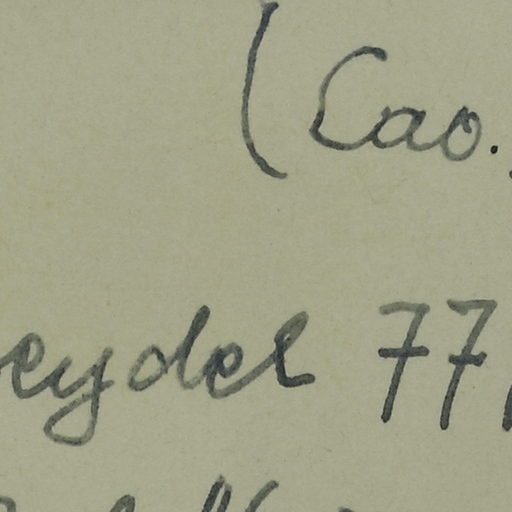 (Cao.
eydel 77